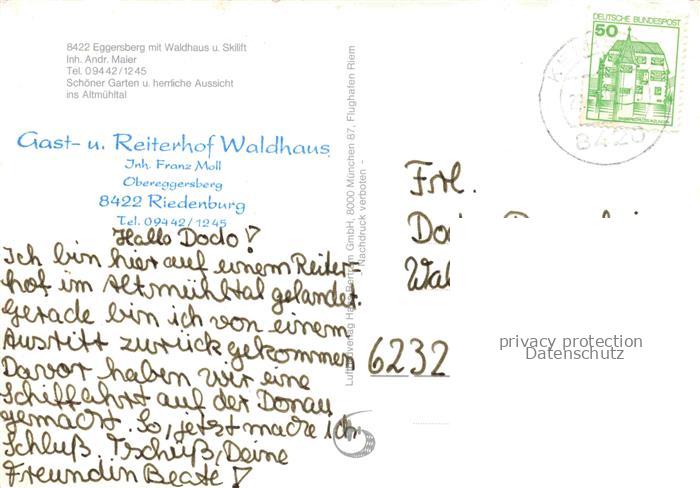 8422 Eggersberg mit Waldhaus u. Skilift
Inh. Andr. Maier
Tel. 09442/1245
Schöner Garten u. herrliche Aussicht
ins Altmühltal
Gast- u. Reiterhof Waldhaus
Inh. Franz Moll
Obereggersberg
8422 Riedenburg
Tel. 09442/1245
Hallo Dodo!
Ich bin hier auf einem Reiter-
hof im Altmühltal gelandet.
Gerade bin ich von einem
Ausritt zurückgekommen
Davor haben wir eine
Schiffahrt auf der Donau
gemacht. So, jetzt mache ich
Schluß. Tschüß, Deine
Freundin Beate!
GmbH, 8000 München 87, Flughafen Riem
- Nachdruck verboten -
DEUTSCHE BUNDESPOST
50
8420
Frl.
6232
privacy protection
Datenschutz